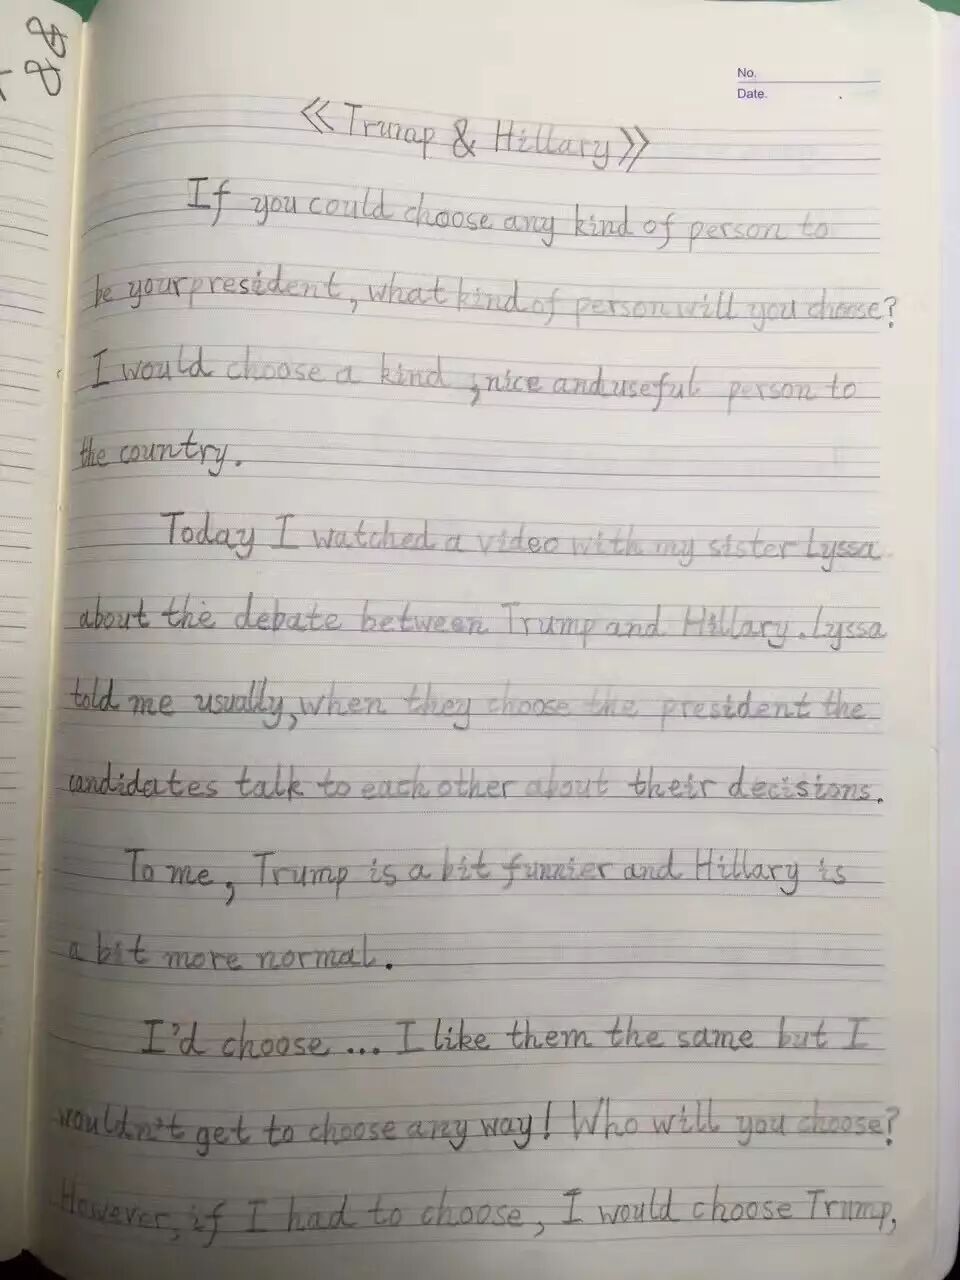 88
No.
Date.
《Trump & Hillary》
If you could choose any kind of person to
be your president, what kind of person will you choose?
I would choose a kind, nice and useful person to
the country.
Today I watched a video with my sister Lyssa
about the debate between Trump and Hillary. Lyssa
told me usually, when they choose the president the
candidates talk to each other about their decisions.
To me, Trump is a bit funnier and Hillary is
a bit more normal.
I'd choose ... I like them the same but I
wouldn't get to choose any way! Who will you choose?
However, if I had to choose, I would choose Trump,